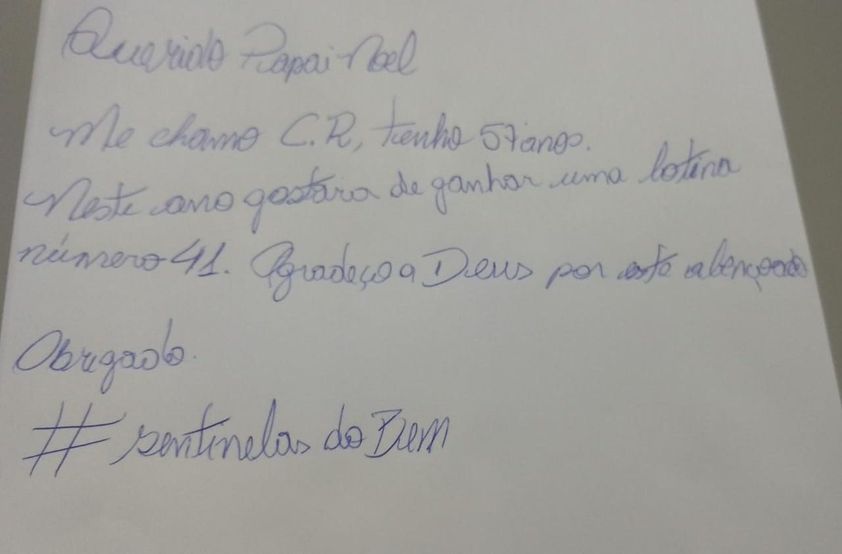 Querido Papai Noel
Me chamo C.R, tenho 57 anos.
Neste ano gostara de ganhar uma botina
número 41. Agradeço a Deus por este abençoado
Obrigado.
#sentinelas do Bem